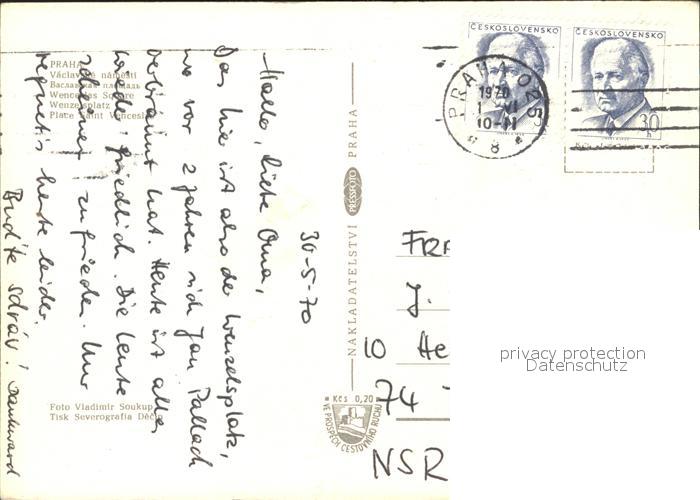 PRAHA
Václavské náměstí
Вацлавская площадь
Wenceslas Square
Wenzelsplatz
Place Saint Venceslas
30-5-70
Hallo, liebe Oma,
Das hie ist also der Wenzelsplatz,
wo vor 2 Jahren sich Jan Pallach
verbrannt hat. Heute ist alles
wieder friedlich. Die Leute
scheinen zufrieden. Nur
regnet's heute leider.
Buďte zdráv!
Foto Vladimír Soukup
Tisk Severografia Děčín
NAKLADATELSTVÍ PRESSFOTO PRAHA
Kčs 0,20
VE PROSPĚCH CESTOVNÍHO RUCHU
ČESKOSLOVENSKO
ČESKOSLOVENSKO
30 h
PRAHA 025
1970
1 VI
10-11
8
J.
10 He
74
NSR
privacy protection
Datenschutz